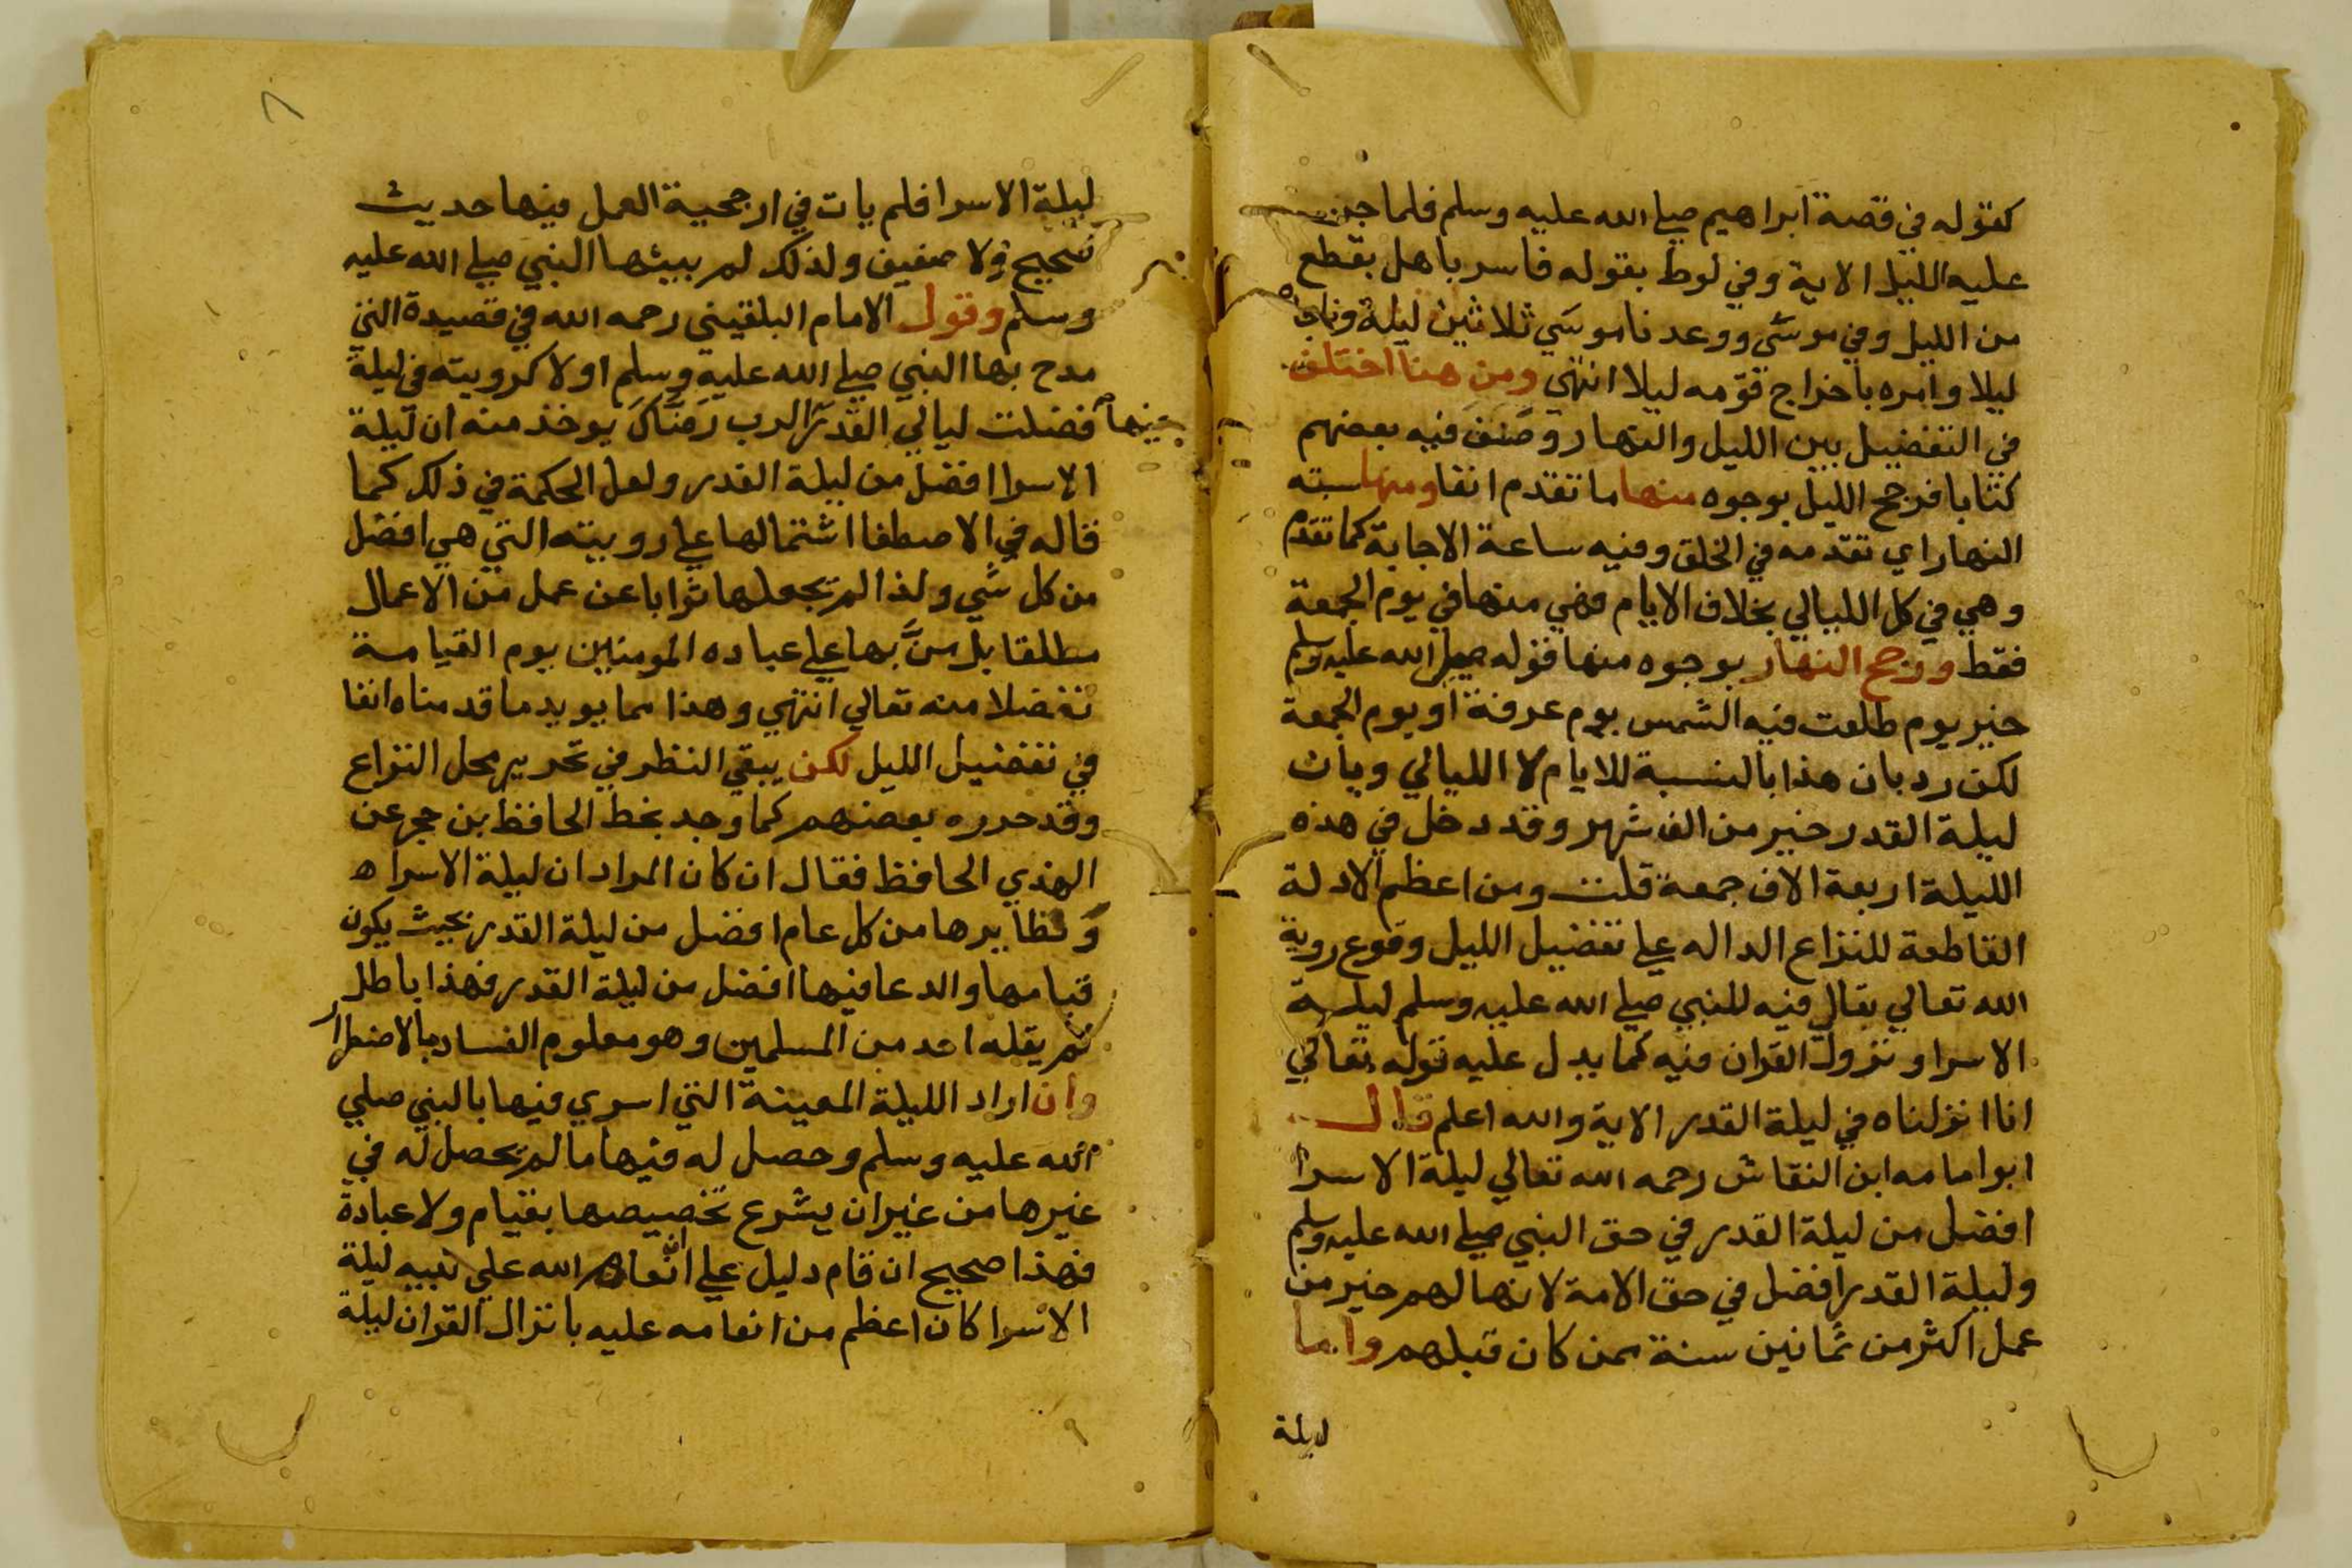 كقوله في قصة ابراهيم صلي الله عليه وسلم فلما جن
عليه الليل الاية وفي لوط بقوله فاسر باهل بقطع
من الليل وفي موسي ووعدنا موسي ثلاثين ليلة وناجاه
ليلا وامره باخراج قومه ليلا انتهي ومن هنا اختلف
في التفضيل بين الليل والنهار وصنف فيه بعضهم
كتابا فرجح الليل بوجوه منها ما تقدم انفا ومنها سبته
النهار اي تقدمه في الخلق وفيه ساعة الاجابة كما تقدم
وهي في كل الليالي بخلاف الايام فهي منها في يوم الجمعة
فقط ورجح النهار بوجوه منها قوله صلي الله عليه وسلم
خير يوم طلعت فيه الشمس يوم عرفة او يوم الجمعة
لكن رد بان هذا بالنسبة للايام لا الليالي وبان
ليلة القدر خير من الف شهر وقد دخل في هذه
الليلة اربعة الاف جمعة قلت ومن اعظم الادلة
القاطعة للنزاع الداله علي تفضيل الليل وقوع روية
الله تعالي تعالي فيه للنبي صلي الله عليه وسلم ليلة
الاسرا ونزول القران فيه كما يدل عليه قوله تعالي
انا انزلناه في ليلة القدر الاية والله اعلم قال
ابو امامه ابن النقاش رحمه الله تعالي ليلة الاسرا
افضل من ليلة القدر في حق النبي صلي الله عليه وسلم
وليلة القدر افضل في حق الامة لانها لهم خير من
عمل اكثر من ثمانين سنة ممن كان قبلهم واما
ليلة
٨
ليلة الاسرا فلم يات في ارجحية العمل فيها حديث
صحيح ولا ضعيف ولذلك لم يبينها النبي صلي الله عليه
وسلم وقول الامام البلقيني رحمه الله في قصيدة التي
مدح بها النبي صلي الله عليه وسلم اولاك رويته في ليلة
فضلت ليالي القدر الرب رضاك يوخذ منه ان ليلة
فيها
الاسرا افضل من ليلة القدر ولعل الحكمة في ذلك كما
قاله في الاصطفا اشتمالها علي رويته التي هي افضل
من كل شي ولذا لم يجعلها ثوابا عن عمل من الاعمال
مطلقا بل من بها علي عباده المومنين يوم القيامة
تفضلا منه تعالي انتهي وهذا مما يويد ما قدمناه انفا
في تفضيل الليل لكن يبقي النظر في تحرير محل النزاع
وقد حرره بعضهم كما وجد بخط الحافظ بن حجر عن
الهذي الحافظ فقال ان كان المراد ان ليلة الاسرا ه
ونظايرها من كل عام افضل من ليلة القدر بحيث يكون
قيامها والدعا فيها افضل من ليلة القدر فهذا باطل
لم يقله احد من المسلمين وهو معلوم الفساد بالاضطرار
وان اراد الليلة المعينة التي اسري فيها بالنبي صلي
الله عليه وسلم وحصل له فيها ما لم يحصل له في
غيرها من غير ان يشرع تخصيصها بقيام ولا عبادة
فهذا صحيح ان قام دليل علي ان انعام الله علي نبيه ليلة
الاسرا كان اعظم من انعامه عليه بانزال القران ليلة